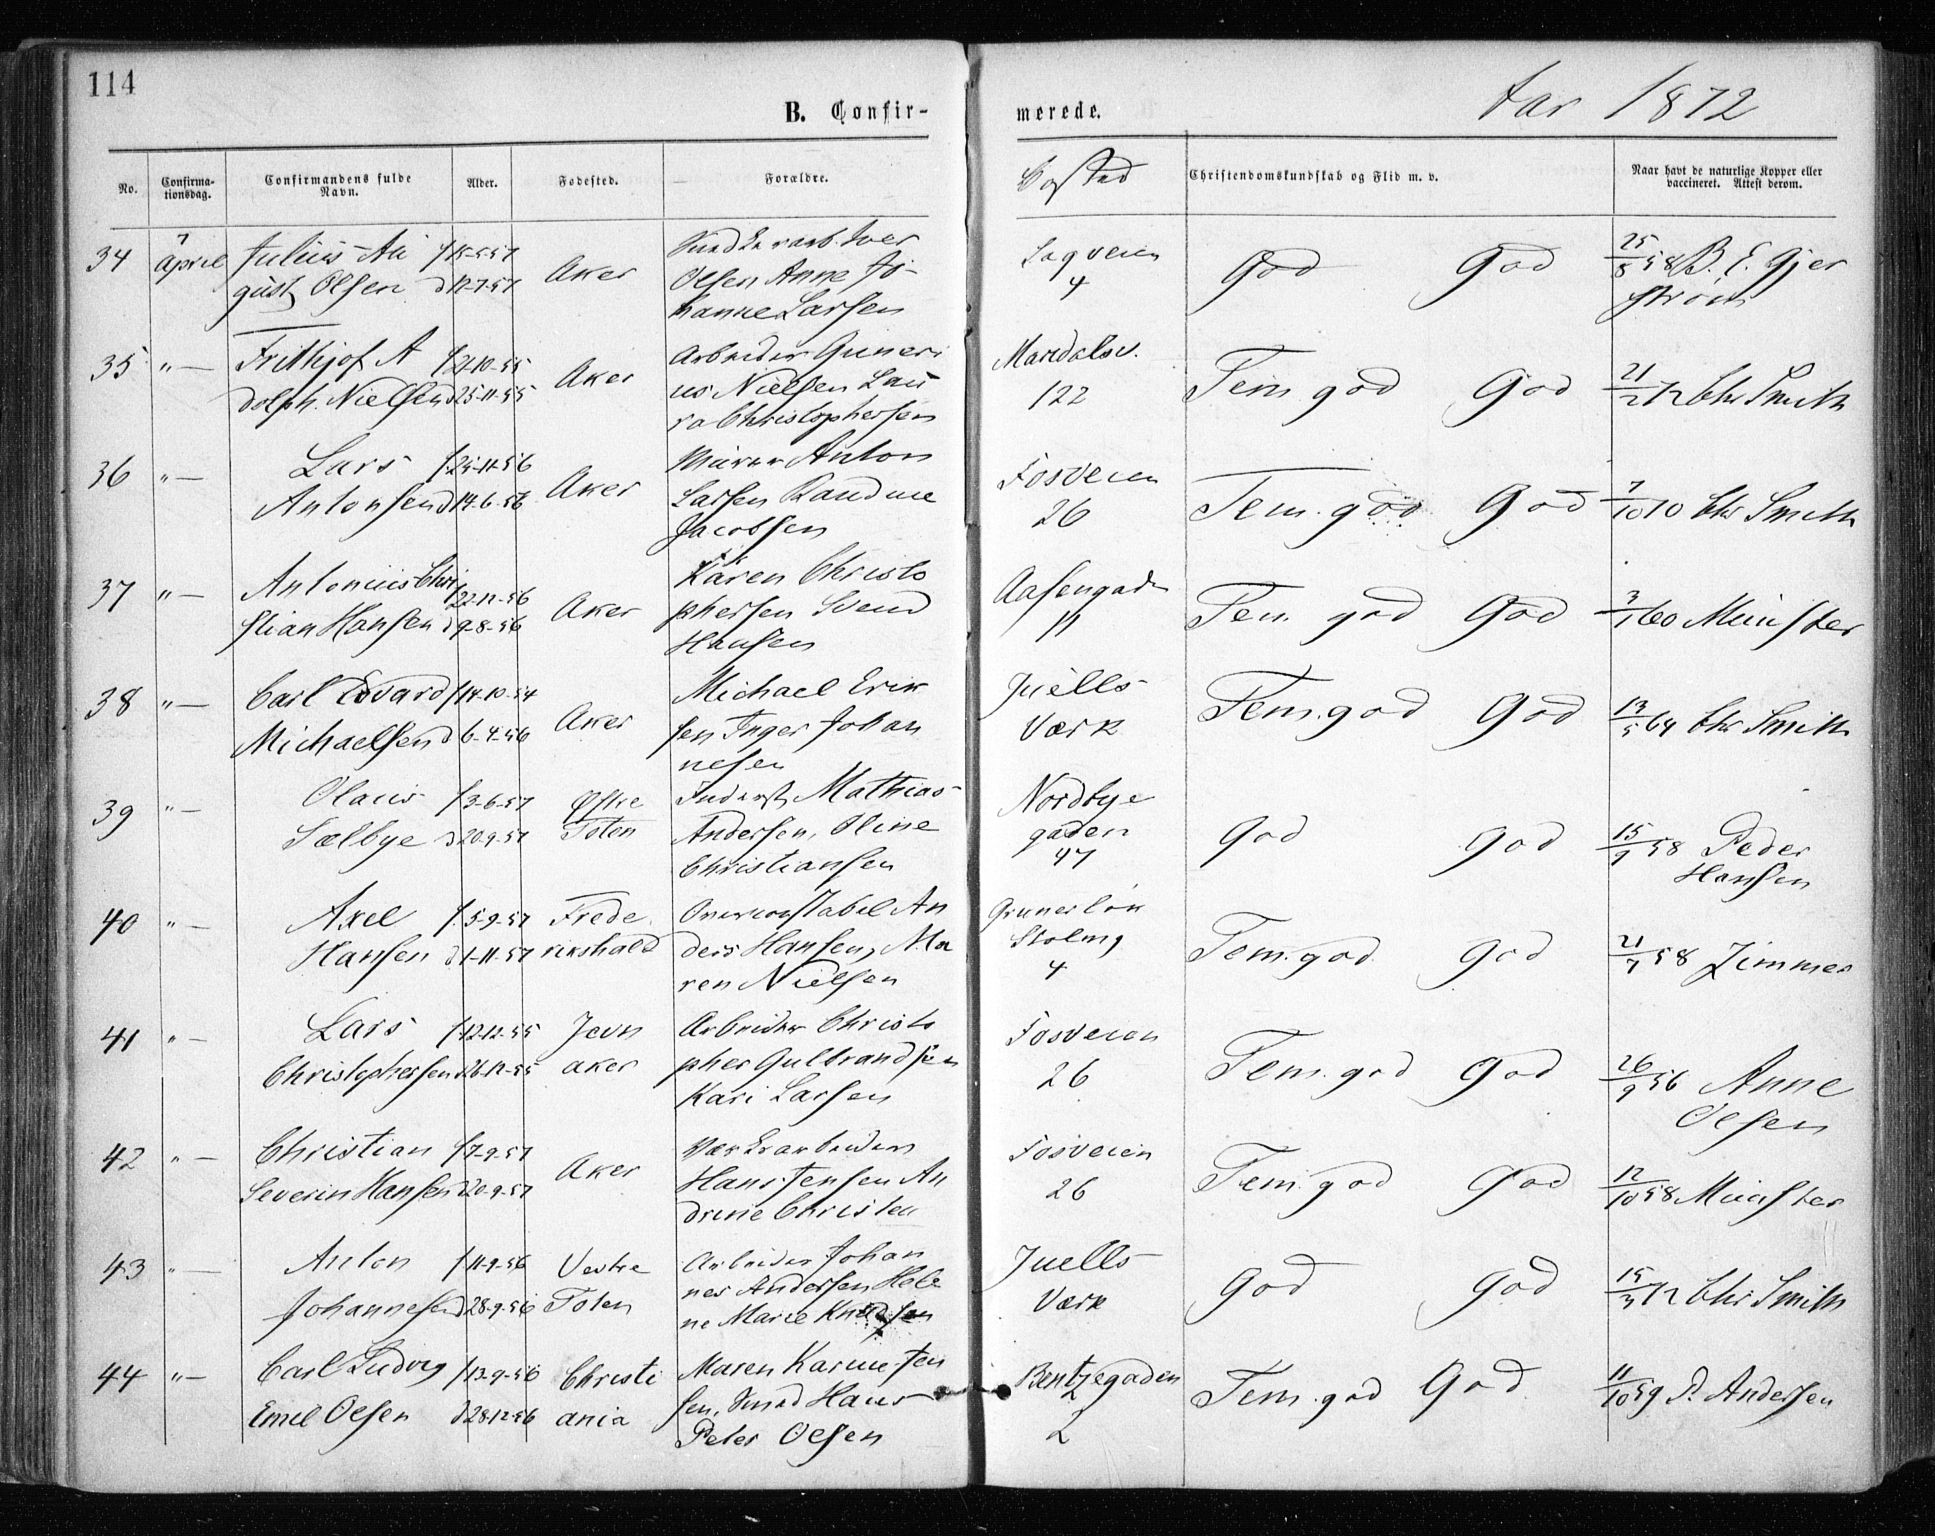 114
B. Confir-
merede.
Aar 1872
No.
Confirma-
tionsdag.
Confirmandens fulde
Navn.
Alder.
Fødested.
Forældre.
Bosted
Christendomskundskab og Flid m. v.
Naar havt de naturlige Kopper eller
vaccineret. Attest derom.
34
7
April
Julius Au
gust Olsen
f 15-5-57
d 12-7-57
Aker
Iver
Olsen Anne Jo-
hanne Larsen
Sagveien
4
God
God
25/8 58 B. E. Gjer
strøm
35
"—
Frithjof A
dolph. Nielsen
f 21-10-55
d 25-11-55
Aker
Arbeider Guneri
us Nielsen Lau
ra Christophersen
Maridalsv.
122
Tem. god
God
21/2 72 Chr Smith
36
"—
Lars
Antonsen
f 25-11-56
d 14-6-56
Aker
Murer Anton
Larsen Randine
Jacobsen
Fosveien
26
Tem. god
God
7/10 70 Chr Smith
37
"—
Antonius Chri
stian Hansen
f 22-12-56
d 9-8-56
Aker
Karen Christo
phersen Svend
Hansen
Aasengaden
11
Tem. god
God
3/1 60 Münster
38
"—
Carl Edvard
Michaelsen
f 14-10-54
d 6-4-56
Aker
Michael Erik
sen Inger Johan
nesen
Juells
Værk
Tem. god
God
13/5 64 Chr Smith
39
"—
Olaus
Sælbye
f 3-6-57
d 20-9-57
Østre
Toten
Inderst Mathias
Andersen, Oline
Christiansen
Nordbye
gaden
47
God
God
15/9 58 Peder
Hansen
40
"—
Axel
Hansen
f. 5-9-57
d 1-11-57
Frede
rikshald
Overconstabel An
ders Hansen, Ma
ren Nielsen
Grunerløk
4
Tem. god
God
21/7 58 Zimmer
41
"—
Lars
Christophersen
f 12-12-55
d 26-12-55
Jevn
aker
Arbeider Christo
pher Gulbrandsen
Kari Larsen
Fosveien
26
Tem. god
God
26/9 56 Anne
Olsen
42
"—
Christian
Severin Hansen
f 7-9-57
d 20-9-57
Aker
Værksarbeider
Hans Jensen An
drine Christen
Fosveien
26
Tem. god
God
12/10 58 Münster
43
"—
Anton
Johannesen
f 11-9-56
d 28-9-56
Vestre
Toten
Arbeider Johan
nes Andersen Hele
ne Marie Knudsen
Juells
Værk
God
God
15/3 72 Chr Smith
44
"—
Carl Ludvig
Emil Olsen
f 13-9-56
d 28-12-56
Christi
ania
Maren Karine Jen
sen, Smed Hans
Peter Olsen
Bentzegaden
2
2
Tem. god
God
11/10 59 P. Andersen